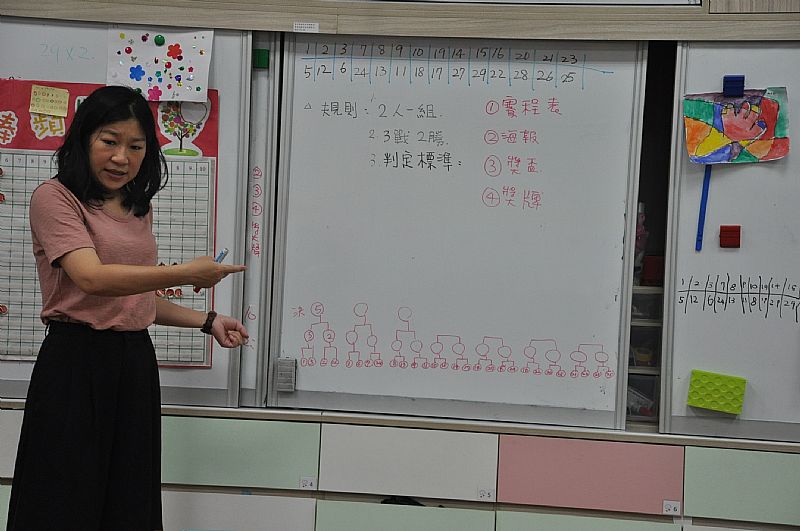 29×2
1 2 3 7 8 9 10 19 14 15 16 20 21 23
5 12 6 24 13 11 18 17 27 29 22 28 26 25
△ 規則：2人一組.
2. 3戰2勝.
3. 判定標準：
① 賽程表
② 海報
③ 獎盃
④ 獎牌
②
③
④
決 ⑤
③ ②
1 2 3 7 8 9 10 19 14 15
5 12 6 24 13 11 18 17 27 29
6 7 8 9 10
4
5
6